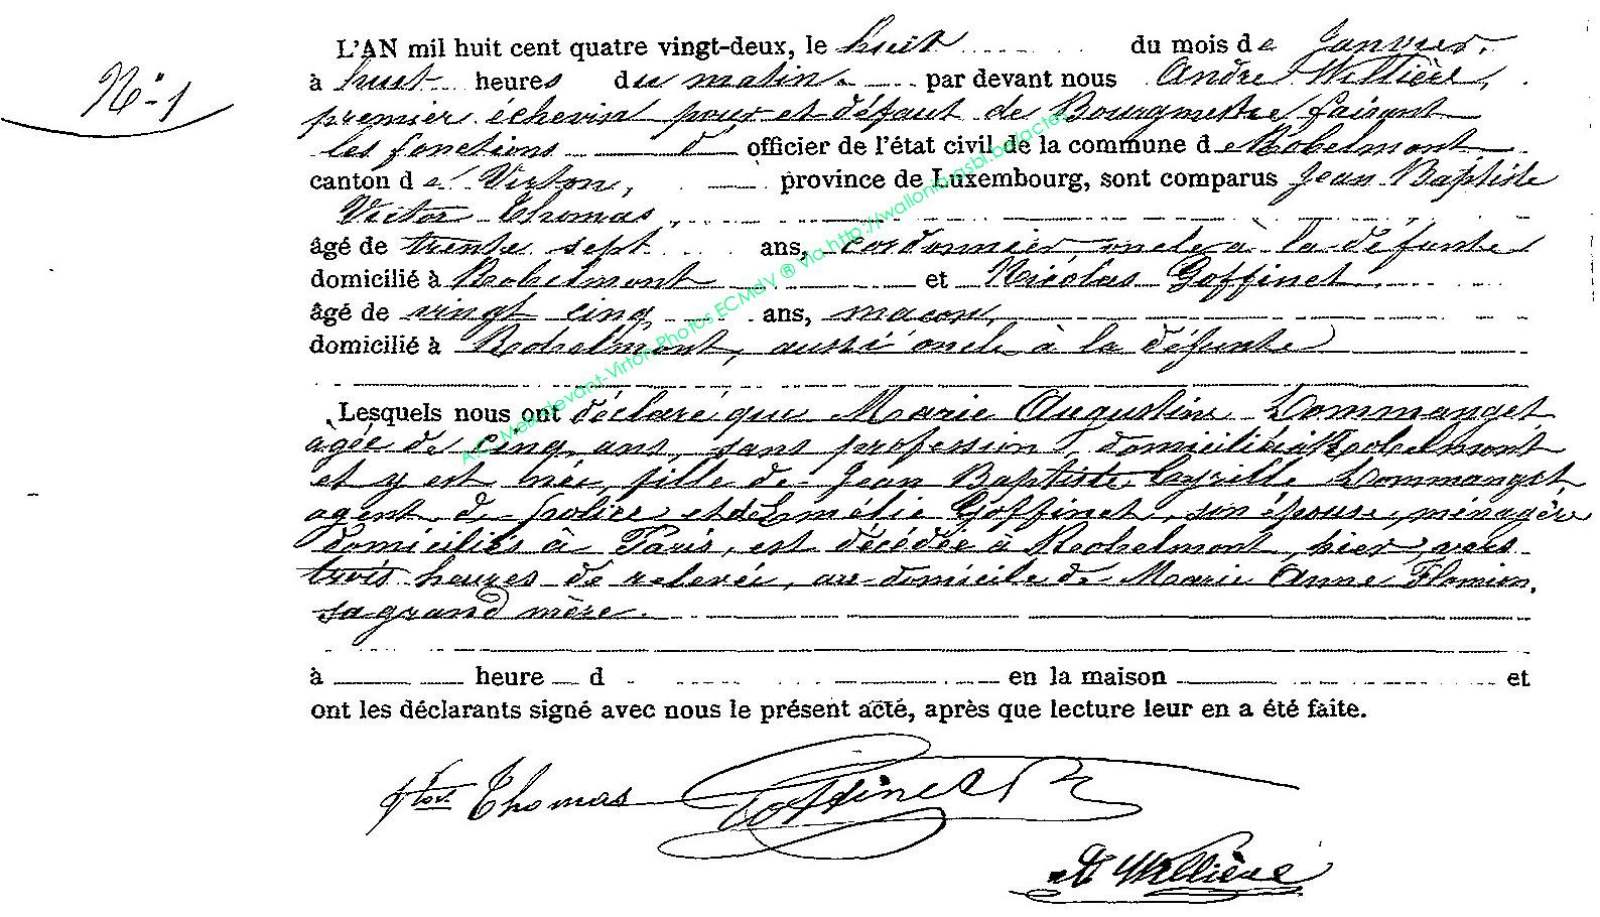 N° 1
L'AN mil huit cent quatre vingt-deux, le huit du mois de Janvier.
à huit heures du matin par devant nous André Willière,
premier échevin pour et défaut de Bourgmestre faisant
les fonctions d'officier de l'état civil de la commune de Robelmont
canton de Virton, province de Luxembourg, sont comparus Jean Baptiste
Victor Thomas
âgé de trente sept ans, cordonnier oncle à la défunte
domicilié à Robelmont et Nicolas Goffinet
âgé de vingt cinq ans, macon,
domicilié à Robelmont, aussi oncle à la défunte
Lesquels nous ont déclaré que Marie Augustine Dommanget
agée de cinq ans, sans profession, domiciliée à Robelmont
et y est née, fille de Jean Baptiste Cyrille Dommanget
agent de police et de Emélie Goffinet, son épouse, ménagère
domiciliés à Paris, est décédée à Robelmont, hier, vers
trois heures de relevée, au domicile de Marie Anne
sa grand mère.
à heure d en la maison et
ont les déclarants signé avec nous le présent acte, après que lecture leur en a été faite.
Thomas Goffinet
A Willière
A.C. Meix-devant-Virton-Photos ECMdV ® via http://wallonia-asbl.be/actes